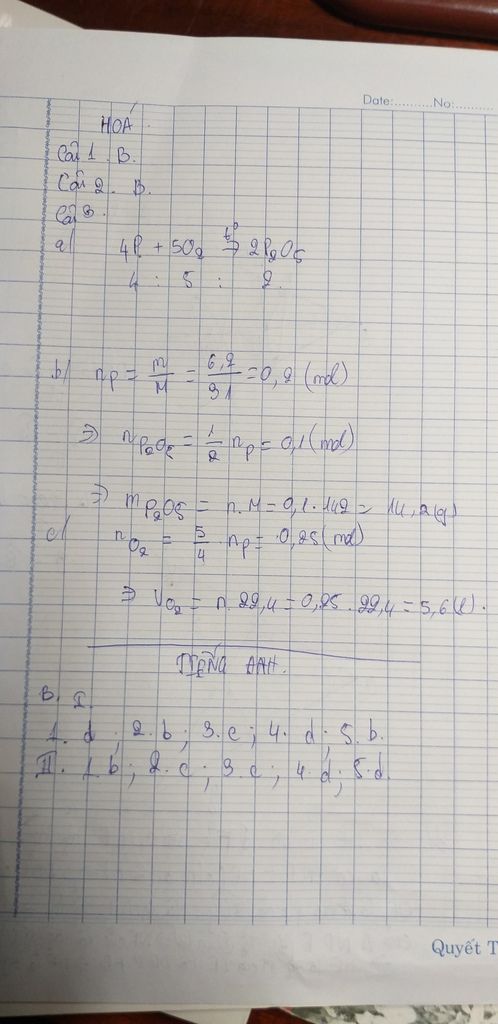 Date:..........No:..........
HOÁ.
Câu 1. B.
Câu 2. D.
Câu 3.
a/ 4P + 5O2 t° → 2P2O5
4 : 5 : 2
b/ nP = m/M = 6,2/31 = 0,2 (mol)
⇒ nP2O5 = 1/2 nP = 0,1 (mol)
⇒ mP2O5 = n.M = 0,1.142 = 14,2 (g)
c/ nO2 = 5/4 . nP = 0,25 (mol)
⇒ VO2 = n.22,4 = 0,25.22,4 = 5,6 (l).
TIẾNG ANH.
B. I.
1. d ; 2. b ; 3. c ; 4. d ; 5. b.
II. 1. b ; 2. c ; 3. c ; 4. d ; 5. d.
Quyết T